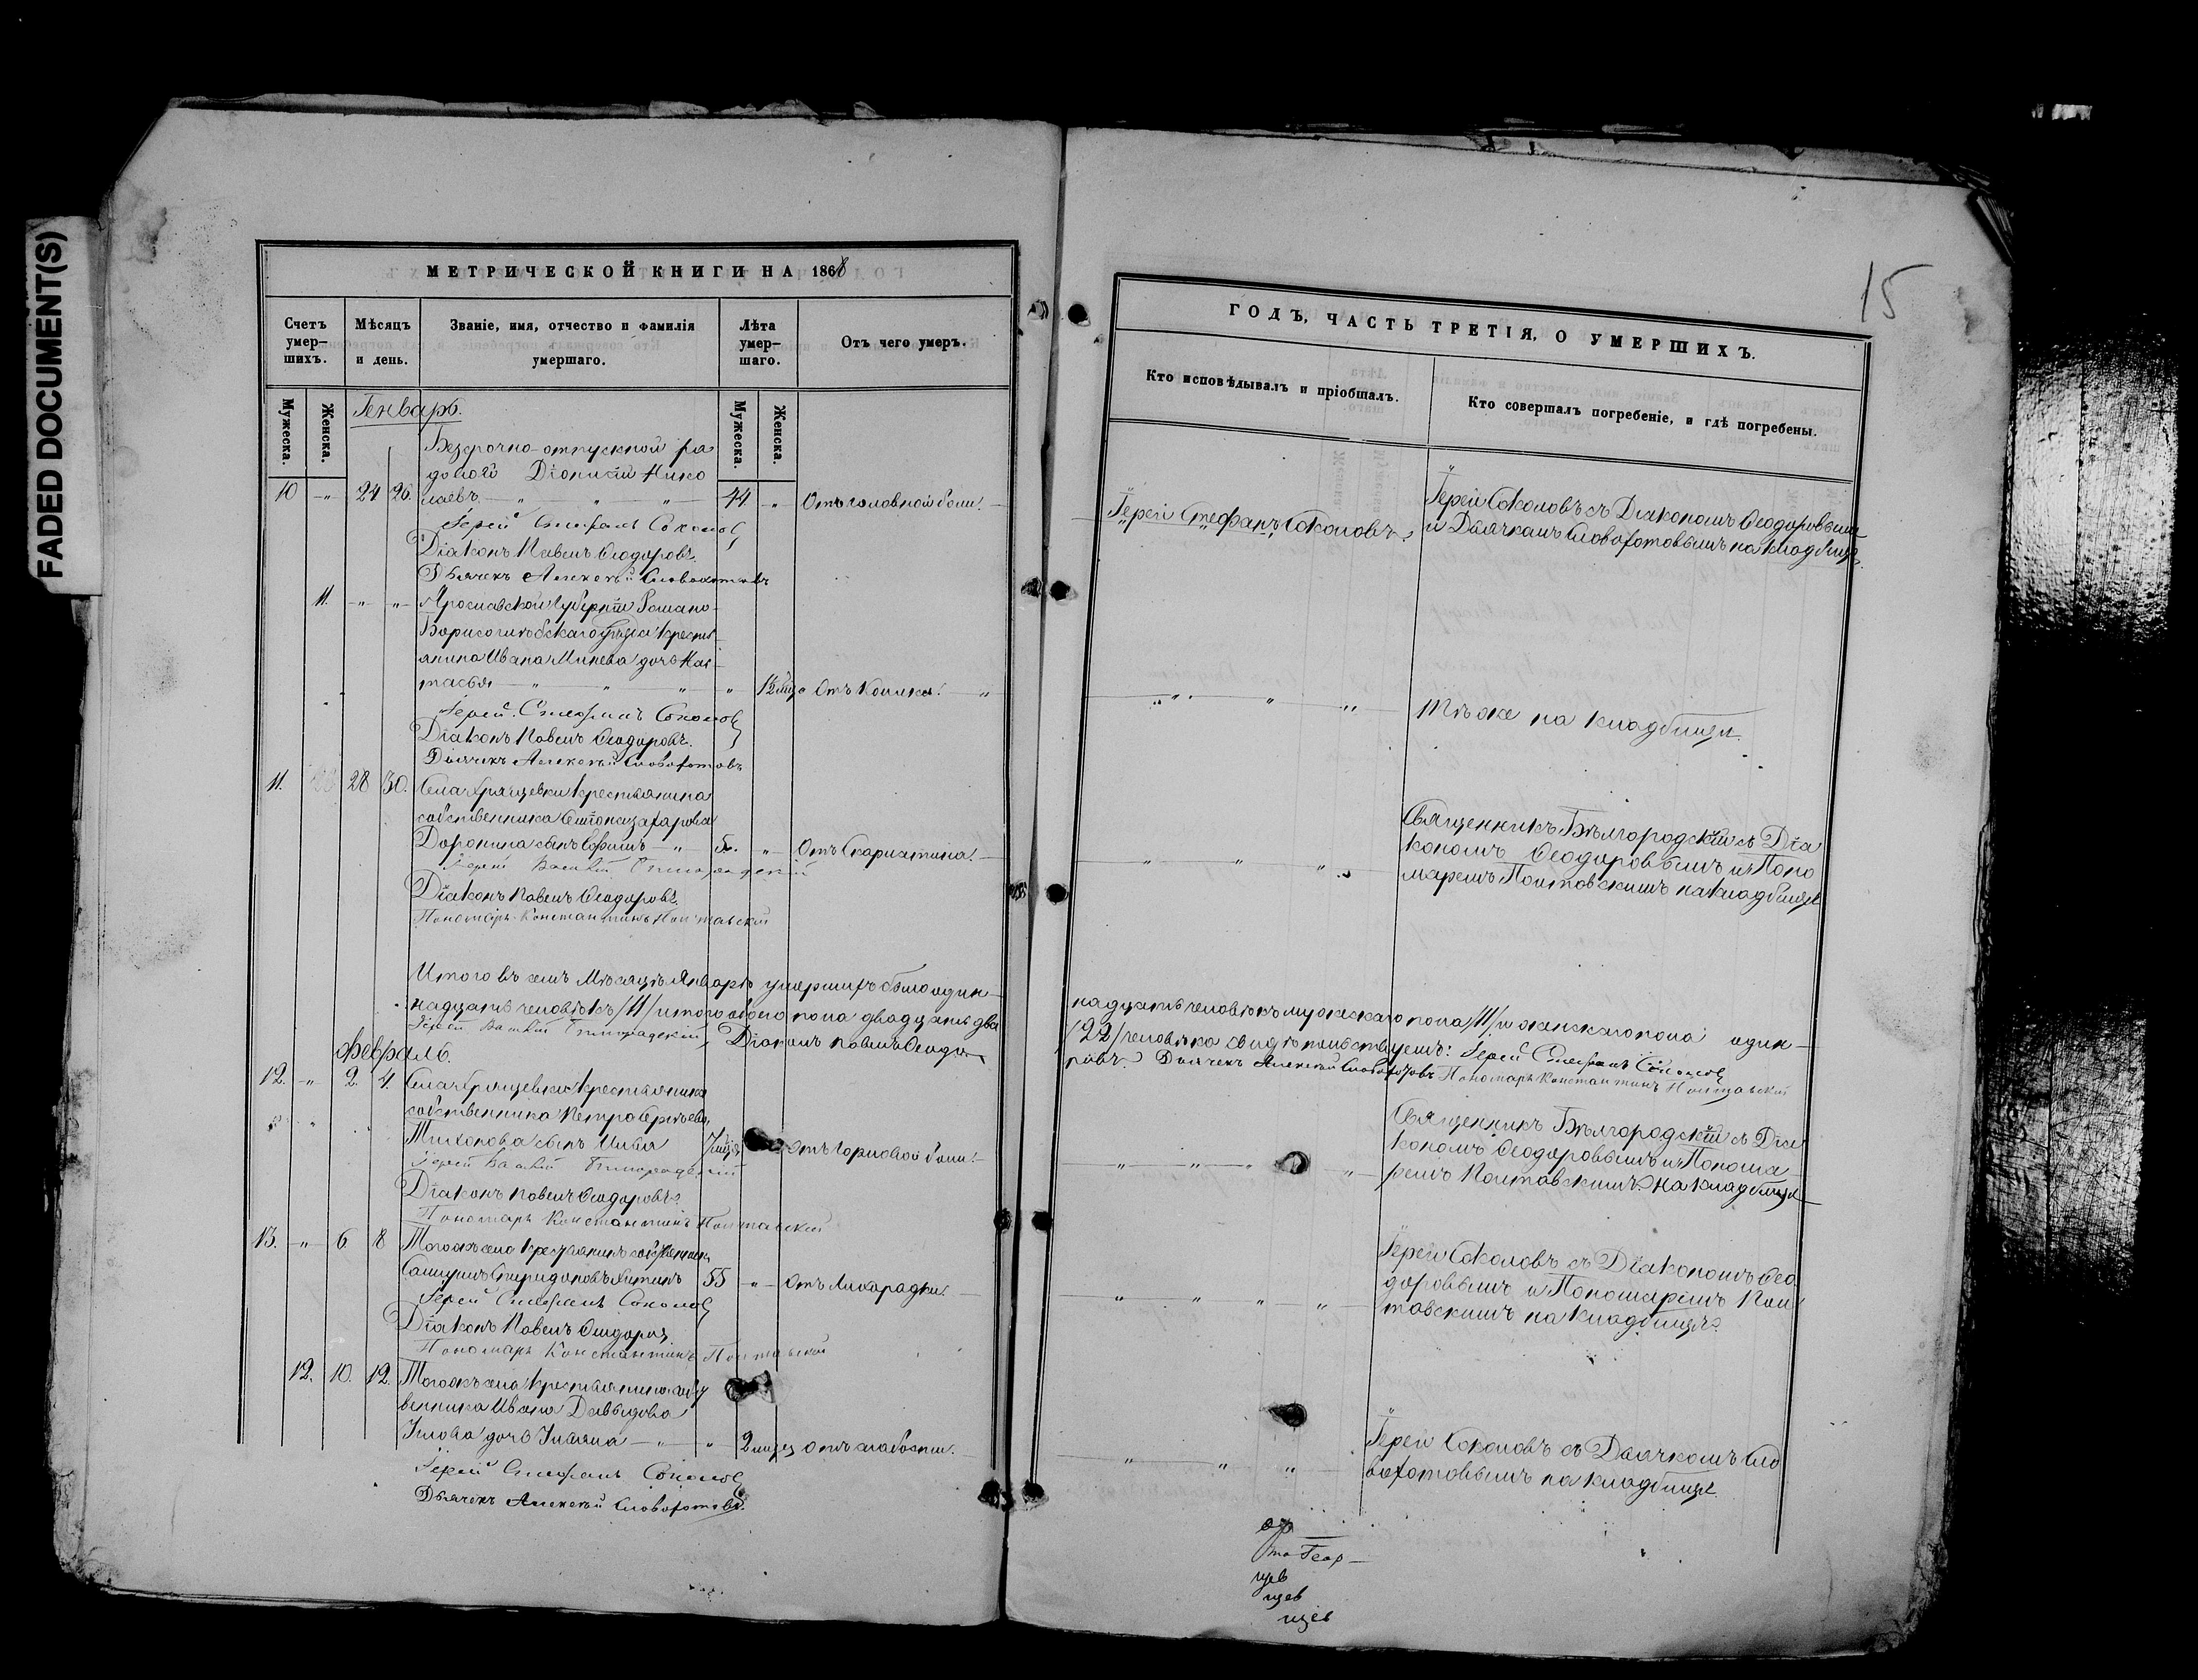 FADED DOCUMENT(S)
МЕТРИЧЕСКОЙ КНИГИ НА 1868
Счетъ умер-
шихъ.
Мѣсяцъ
и день.
Званіе, имя, отчество и фамилія
умершаго.
Лѣта
умер-
шаго.
Отъ чего умеръ.
Мужеска.
Женска.
Мужеска.
Женска.
Генварь.
Безсрочно-отпускной ря
довой Діонисій Нико
10 -„- 24 26. лаевъ -„- „ -„- 44. „ Отъ головной боли.
Іерей Стефанъ Соколов
Діаконъ Павелъ Ѳеодоровъ.
Дьячекъ Алексѣй Словохотовъ
11. -„- -„- Ярославской Губерніи Романо-
Борисоглебскаго уѣзда крестья-
янина Ивана Минева дочь Нас-
тасья -„- „ -„- „ Отъ Коклюша. - „
Іерей Стефанъ Соколов
Діаконъ Павелъ Ѳеодоровъ.
Дьячекъ Алексѣй Словохотовъ
11. 28 30. Села Хрящевки крестьянина
собственника Захарова
Доронина сынъ Ефимъ -„- 5. „ Отъ Скарлатина.
Іерей Василій Бѣлгородскій
Діаконъ Павелъ Ѳеодоровъ.
Пономарь Константинъ Полтавскій
Итого въ семъ Мѣсяцѣ Январѣ умершихъ было один-
надцать человѣкъ /11/ итого обоего пола двадцать два
Іерей Василій Бѣлгородскій, Діаконъ Павелъ Ѳеодо-
Февраль.
12. -„- 2. 4. Села Хрящевки крестьянина
собственника Петра Сергѣева
Тихонова сынъ Илья 7 мцъ Отъ Горловой боли.
Іерей Василій Бѣлгородскій
Діаконъ Павелъ Ѳеодоровъ.
Пономарь Константинъ Полтавскій
13. -„- 6. 8 Тогожъ села Крестьянинъ собственник
Самуилъ Спиридоновъ 55 „ Отъ Лихорадки.
Іерей Стефанъ Соколов
Діаконъ Павелъ Ѳеодоров.
Пономарь Константинъ Полтавскій
12. 10. 12. Тогожъ села Крестьянина собст
венника Ивана Давыдова
дочь Ульяна -„- „ 2 мцъ Отъ слабости.
Іерей Стефанъ Соколов
Дьячекъ Алексѣй Словохотовъ.
15
ГОДЪ, ЧАСТЬ ТРЕТІЯ, О УМЕРШИХЪ.
Кто исповѣдывалъ и пріобщалъ.
Кто совершалъ погребеніе, и гдѣ погребены.
Іерей Стефанъ Соколовъ.
Іерей Соколовъ съ Діакономъ Ѳеодоровымъ
и Дьячкомъ Словохотовымъ на кладбищѣ.
Тѣ же на кладбищѣ.
Священникъ Бѣлгородскій съ Діа
кономъ Ѳеодоровымъ и Поно
маремъ Полтавскимъ на кладбищѣ
надцать человѣкъ мужескаго пола /11/ и женскаго пола один-
/22/ человѣка свидѣтельствуемъ: Іерей Стефанъ Соколов
ровъ. Дьячекъ Алексѣй Словохотовъ Пономарь Константинъ Полтавскій
Священникъ Бѣлгородскій съ Діа
кономъ Ѳеодоровымъ и Понома
ремъ Полтавскимъ на кладбищѣ
Іерей Соколовъ съ Діакономъ Ѳео
доровымъ и Пономаремъ Пол
тавскимъ на кладбищѣ.
Іерей Соколовъ съ Дьячкомъ Сло
вохотовымъ на кладбищѣ.
цев
цев
цев